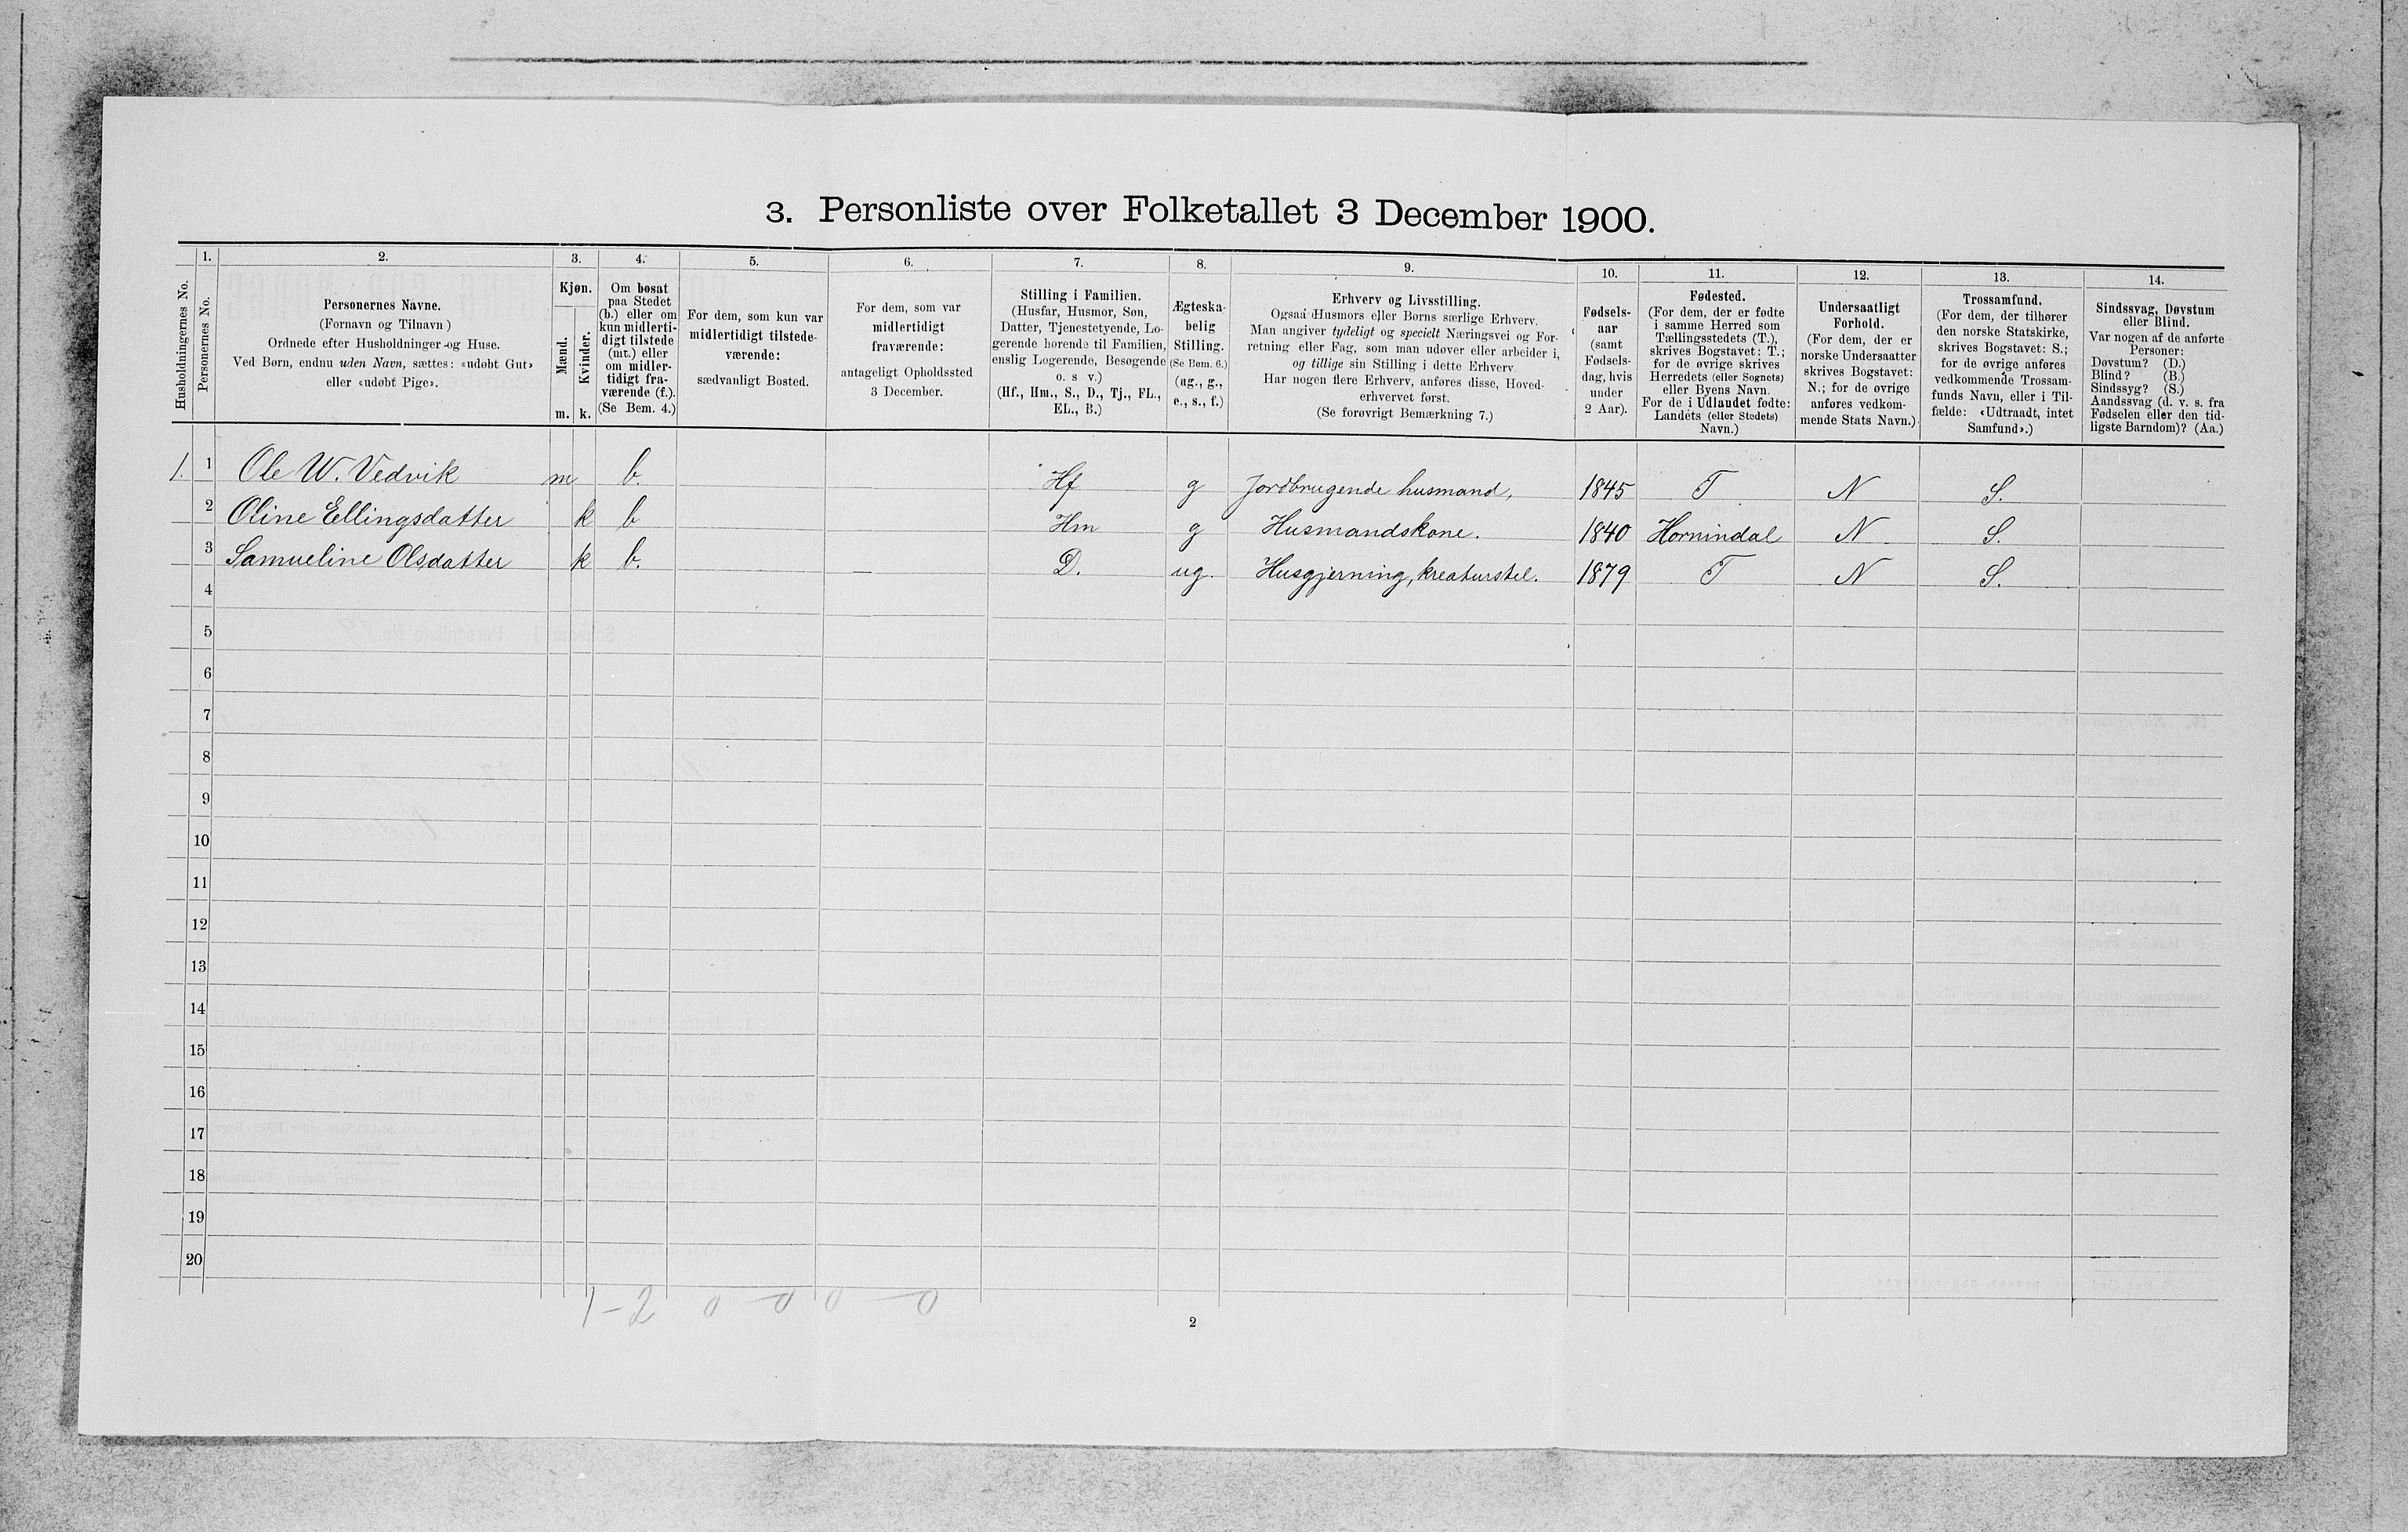 3. Personliste over Folketallet 3 December 1900.
1. 2. 3. 4. 5. 6. 7. 8. 9. 10. 11. 12. 13. 14.
Husholdningernes No.
Personernes No.
Personernes Navne.
(Fornavn og Tilnavn)
Ordnede efter Husholdninger og Huse.
Ved Børn, endnu uden Navn, sættes: «udøbt Gut»
eller «udøbt Pige».
Kjøn.
Mænd.
Kvinder.
m. k.
Om bosat
paa Stedet
(b.) eller om
kun midlerti-
digt tilstede
(mt.) eller
om midler-
tidigt fra-
værende (f.).
(Se Bem. 4.)
For dem, som kun var
midlertidigt tilstede-
værende:
sædvanligt Bosted.
For dem, som var
midlertidigt
fraværende:
antageligt Opholdssted
3 December.
Stilling i Familien.
(Husfar, Husmor, Søn,
Datter, Tjenestetyende, Lo-
gerende hørende til Familien,
enslig Logerende, Besøgende
o. s v.)
(Hf., Hm., S., D., Tj., FL.,
EL., B.)
Ægteska-
belig
Stilling.
(Se Bem. 6.)
(ug., g.,
e., s., f.)
Erhverv og Livsstilling.
Ogsaa Husmors eller Børns særlige Erhverv.
Man angiver tydeligt og specielt Næringsvei og For-
retning eller Fag, som man udøver eller arbeider i,
og tillige sin Stilling i dette Erhverv.
Har nogen flere Erhverv, anføres disse, Hoved-
erhvervet først.
(Se forøvrigt Bemærkning 7.)
Fødsels-
aar
(samt
Fødsels-
dag, hvis
under
2 Aar).
Fødested.
(For dem, der er fødte
i samme Herred som
Tællingsstedets (T.),
skrives Bogstavet: T.;
for de øvrige skrives
Herredets (eller Sognets)
eller Byens Navn.
For de i Udlandet fødte:
Landets (eller Stedets)
Navn.)
Undersaatligt
Forhold.
(For dem, der er
norske Undersaatter
skrives Bogstavet:
N.; for de øvrige
anføres vedkom-
mende Stats Navn.)
Trossamfund.
(For dem, der tilhører
den norske Statskirke,
skrives Bogstavet: S.;
for de øvrige anføres
vedkommende Trossam-
funds Navn, eller i Til-
fælde: «Udtraadt, intet
Samfund».)
Sindssvag, Døvstum
eller Blind.
Var nogen af de anførte
Personer:
Døvstum? (D.)
Blind? (B.)
Sindssyg? (S.)
Aandssvag (d. v. s. fra
Fødselen eller den tid-
ligste Barndom)? (Aa.)
1. 1 Ole W. Vedvik m b. Hf g Jordbrugende husmand, 1845 T N S.
2 Oline Ellingsdatter k b Hm g Husmandskone. 1840 Hornindal N S.
3 Samueline Olsdatter k b. D. ug. Husgjerning, kreaturstel. 1879 T N S.
4
5
6
7
8
9
10
11
12
13
14
15
16
17
18
19
20
1-2 0 0 0 0
2